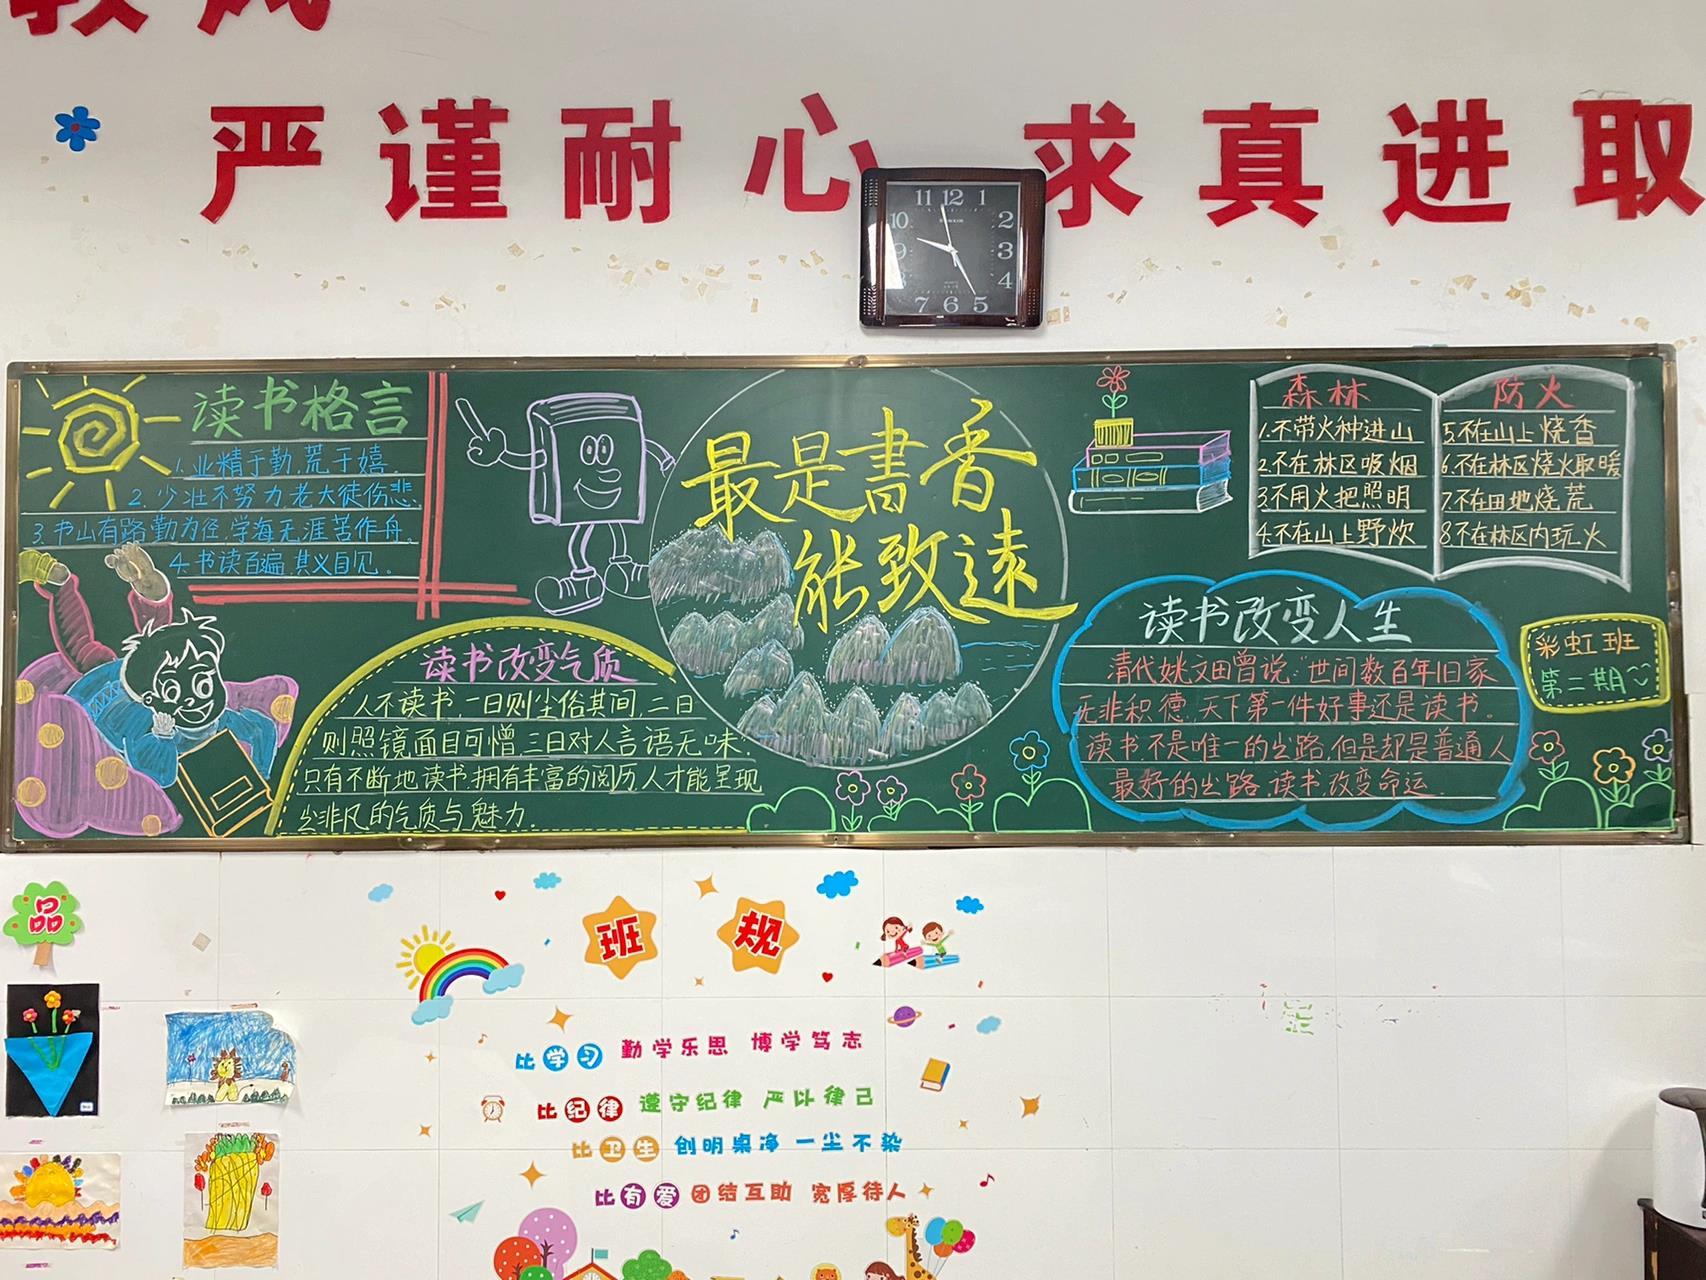 严谨耐心 求真进取
11 12 1
10 2
9 3
4
7 6 5
读书格言
1.业精于勤,荒于嬉.
2.少壮不努力,老大徒伤悲.
3.书山有路勤力径,学海无涯苦作舟.
4.书读百遍,其义自见.
最是書香
能致遠
森林
1.不带火种进山
2.不在林区吸烟
3.不用火把照明
4.不在山上野炊
防火
5.不在山上烧香
6.不在林区烧火取暖
7.不在田地烧荒
8.不在林区内玩火
读书改变气质
人不读书,一日则尘俗其间,二日
则照镜面目可憎,三日对人言语无味.
只有不断地读书,拥有丰富的阅历,人才能呈现
出非凡的气质与魅力.
读书改变人生
清代姚文田曾说:“世间数百年旧家
无非积德,天下第一件好事还是读书。
读书,不是唯一的出路,但是却是普通人
最好的出路,读书,改变命运.
彩虹班
第二期~
品
班 规
比学习 勤学乐思 博学笃志
比纪律 遵守纪律 严以律己
比卫生 创明桌净 一尘不染
比有爱 团结互助 宽厚待人